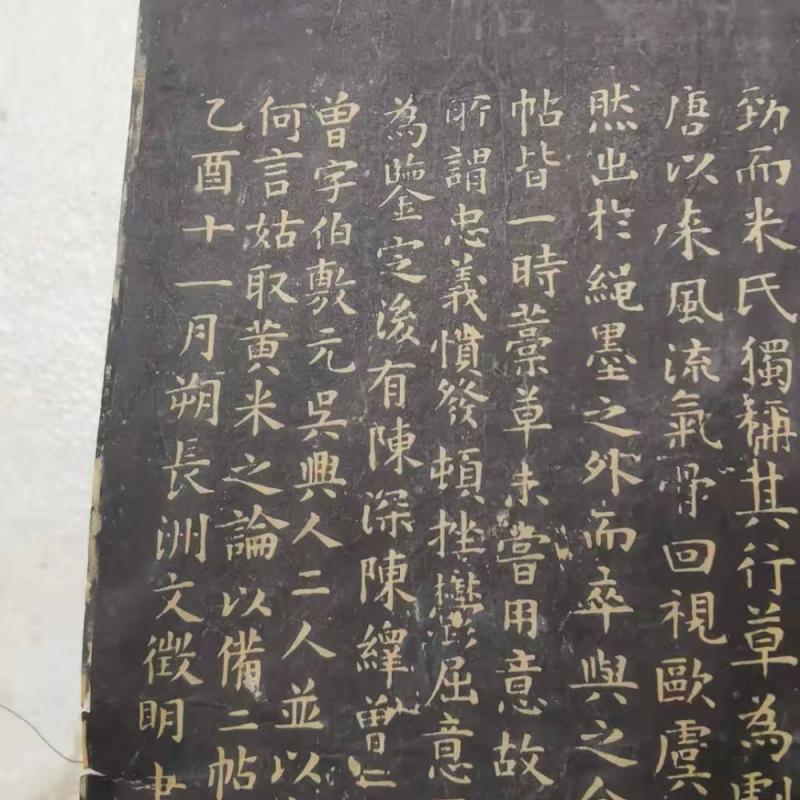 勁而米氏獨稱其行草為劇
唐以來風流氣骨回視歐虞
然出於繩墨之外而卒與之合
帖皆一時藁草未嘗用意故
所謂忠義憤發頓挫鬱屈意
為鑒定後有陳深陳繹曾二
曾字伯敷元吳興人二人並以
何言姑取黃米之論以備二帖
乙酉十一月朔長洲文徵明書